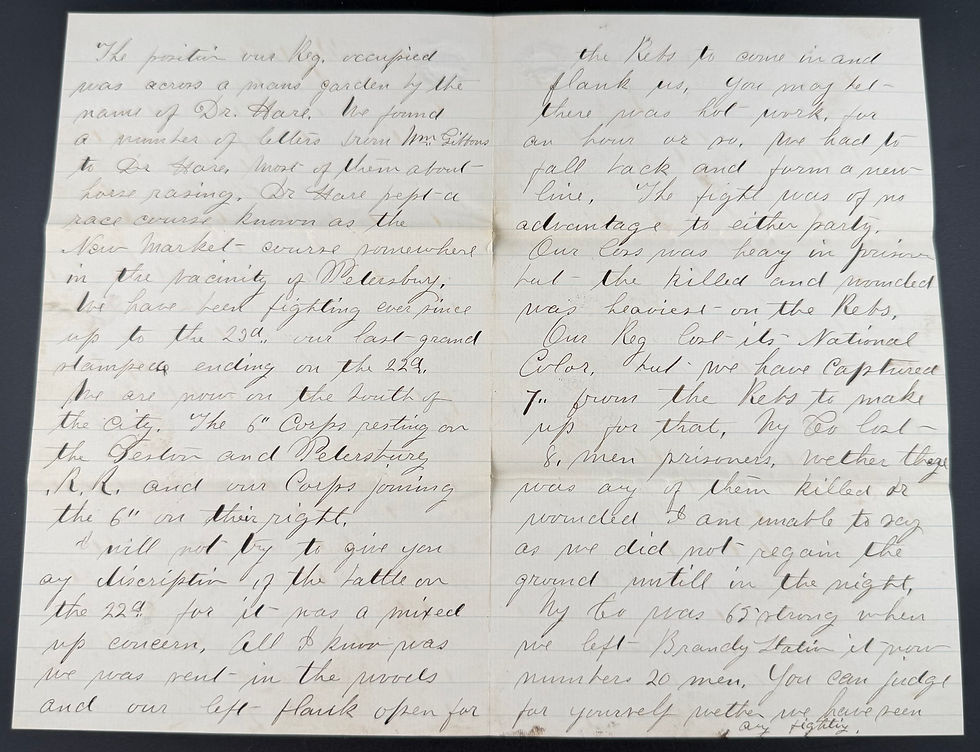 The position our Reg. occupied
was across a mans garden by the
name of Dr. Hare. We found
a number of letters from Wm Gibbons
to Dr Hare, most of them about
horse rasing. Dr Hare kept a
race course known as the
New Market course somewhere
in the vacinity of Petersburg.
We have been fighting ever since
up to the 23d,, our last grand
stampede ending on the 22d.
We are now on the South of
the City. The 6" Corps resting on
the and Petersburg
R. R. and our Corps joining
the 6" on their right.
I will not try to give you
ay discription of the battle on
the 22d for it was a mixed
up concern. All I know was
we was sent in the woods
and our left flank open for
the Rebs to come in and
flank us. You may bet
there was hot work, for
an hour or so. We had to
fall back and form a new
line. The fight was of no
advantage to either party.
Our loss was heavy in prisoners
but the killed and wounded
was heaviest on the Rebs.
Our Reg lost its National
Color, but we have captured
7" from the Rebs to make
up for that. My Co lost
8, men prisoners, wether there
was any of them killed or
wounded I am unable to say
as we did not regain the
ground untill in the night.
My Co was 65 strong when
we left Brandy Station it now
numbers 20 men. You can judge
for yourself wether we have seen
any fighting.